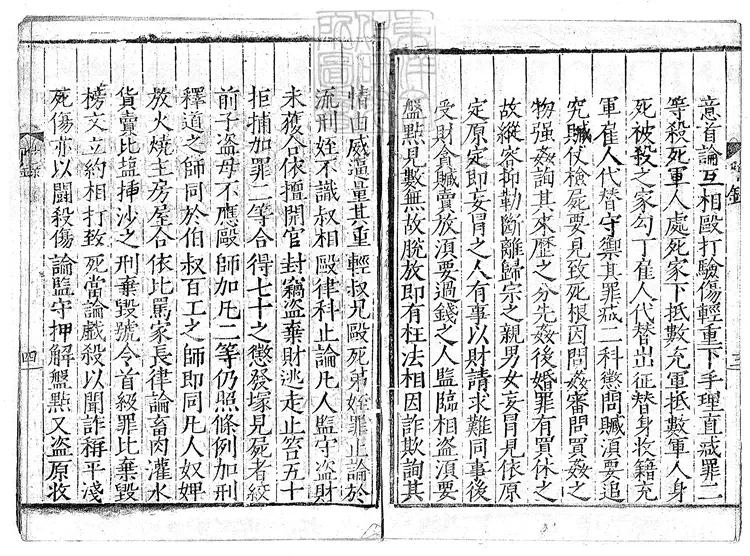 意首論互相毆打驗傷輕重下手理直戒罪二
等殺死軍人處死家下抵數充軍抵數軍人身
死被殺之家勾丁雇人代替出征替身收籍充
軍雇人代替守禦其罪戒二科懲問贓須要追
究贓仗檢屍要見致死根因問姦審問買姦之
物强姦詢其來歷之分先姦後婚罪有買休之
故縱容抑勒斷離歸宗之親男女妄冒見依原
定原定即妄冒之人有事以財請求難同事後
受財貪贓賣放須要過錢之人監臨相盜須要
盤點見數無故脫放即有枉法相因詐欺詢其
情由威逼量其重輕叔兄毆死弟姪罪止論於
流刑姪不識叔相毆律科止論凡人監守盜財
未獲合依擅開官封竊盜棄財逃走止笞五十
拒捕加罪二等合得七十之懲發塚見屍者絞
前子盜母不應毆師加凡二等仍照條例加刑
釋道之師同於伯叔百工之師即同凡人奴婢
放火燒主房屋合依比罵家長律論畜肉灌水
貨賣比鹽插沙之刑棄毀號令首級罪比棄毀
榜文立約相打致死當論戲殺以聞詐稱平淺
死傷亦以鬬殺傷論監守押解盤點又盜原收
四